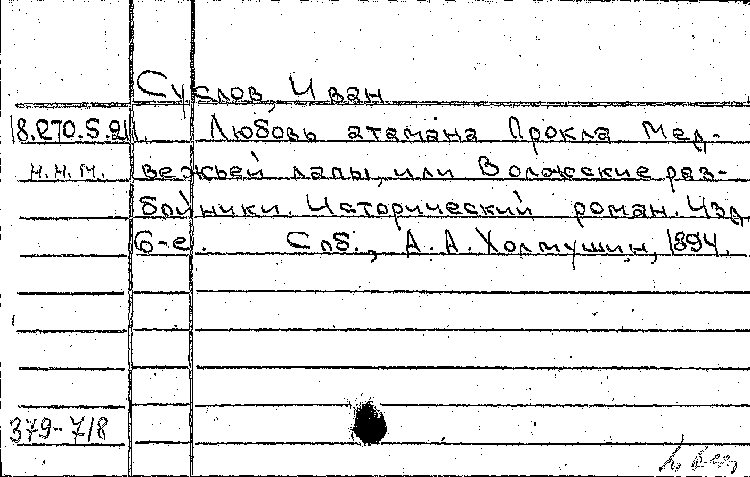 Суслов, Иван
18.270.5.211. Любовь атамана Прокла Мед-
н.н.м. вежьей лапы, или Волжские раз-
бойники. Исторический роман. Изд.
6-е. Спб., А.А. Холмушин, 1894.
379-718